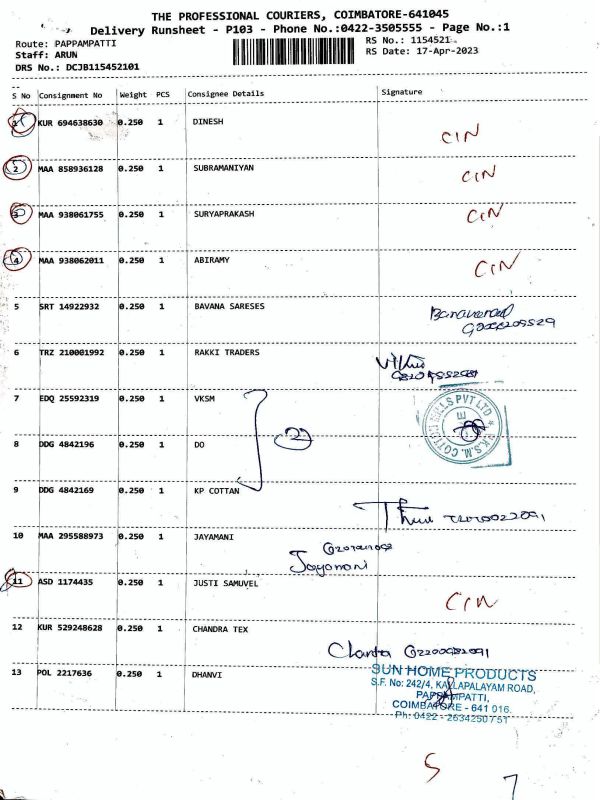 THE PROFESSIONAL COURIERS, COIMBATORE-641045
Delivery Runsheet - P103 - Phone No.:0422-3505555 - Page No.:1
Route: PAPPAMPATTI
Staff: ARUN
DRS No.: DCJB115452101
RS No.: 1154521
RS Date: 17-Apr-2023
S No Consignment No Weight PCS Consignee Details Signature
1 KUR 694638630 0.250 1 DINESH CIN
2 MAA 858936128 0.250 1 SUBRAMANIYAN CIN
3 MAA 938061755 0.250 1 SURYAPRAKASH CIN
4 MAA 938062011 0.250 1 ABIRAMY CIN
5 SRT 14922932 0.250 1 BAVANA SARESES
6 TRZ 210001992 0.250 1 RAKKI TRADERS
7 EDQ 25592319 0.250 1 VKSM
8 DDG 4842196 0.250 1 DO
V.K.S.M. COTTON MILLS PVT LTD
9 DDG 4842169 0.250 1 KP COTTAN
10 MAA 295588973 0.250 1 JAYAMANI
Jayamani
11 ASD 1174435 0.250 1 JUSTI SAMUVEL CIN
12 KUR 529248628 0.250 1 CHANDRA TEX
13 POL 2217636 0.250 1 DHANVI
SUN HOME PRODUCTS
S.F. No: 242/4, KALLAPALAYAM ROAD,
PAPPAMPATTI,
COIMBATORE - 641 016.
Ph: 0422 - 2634250 / 51
5
7